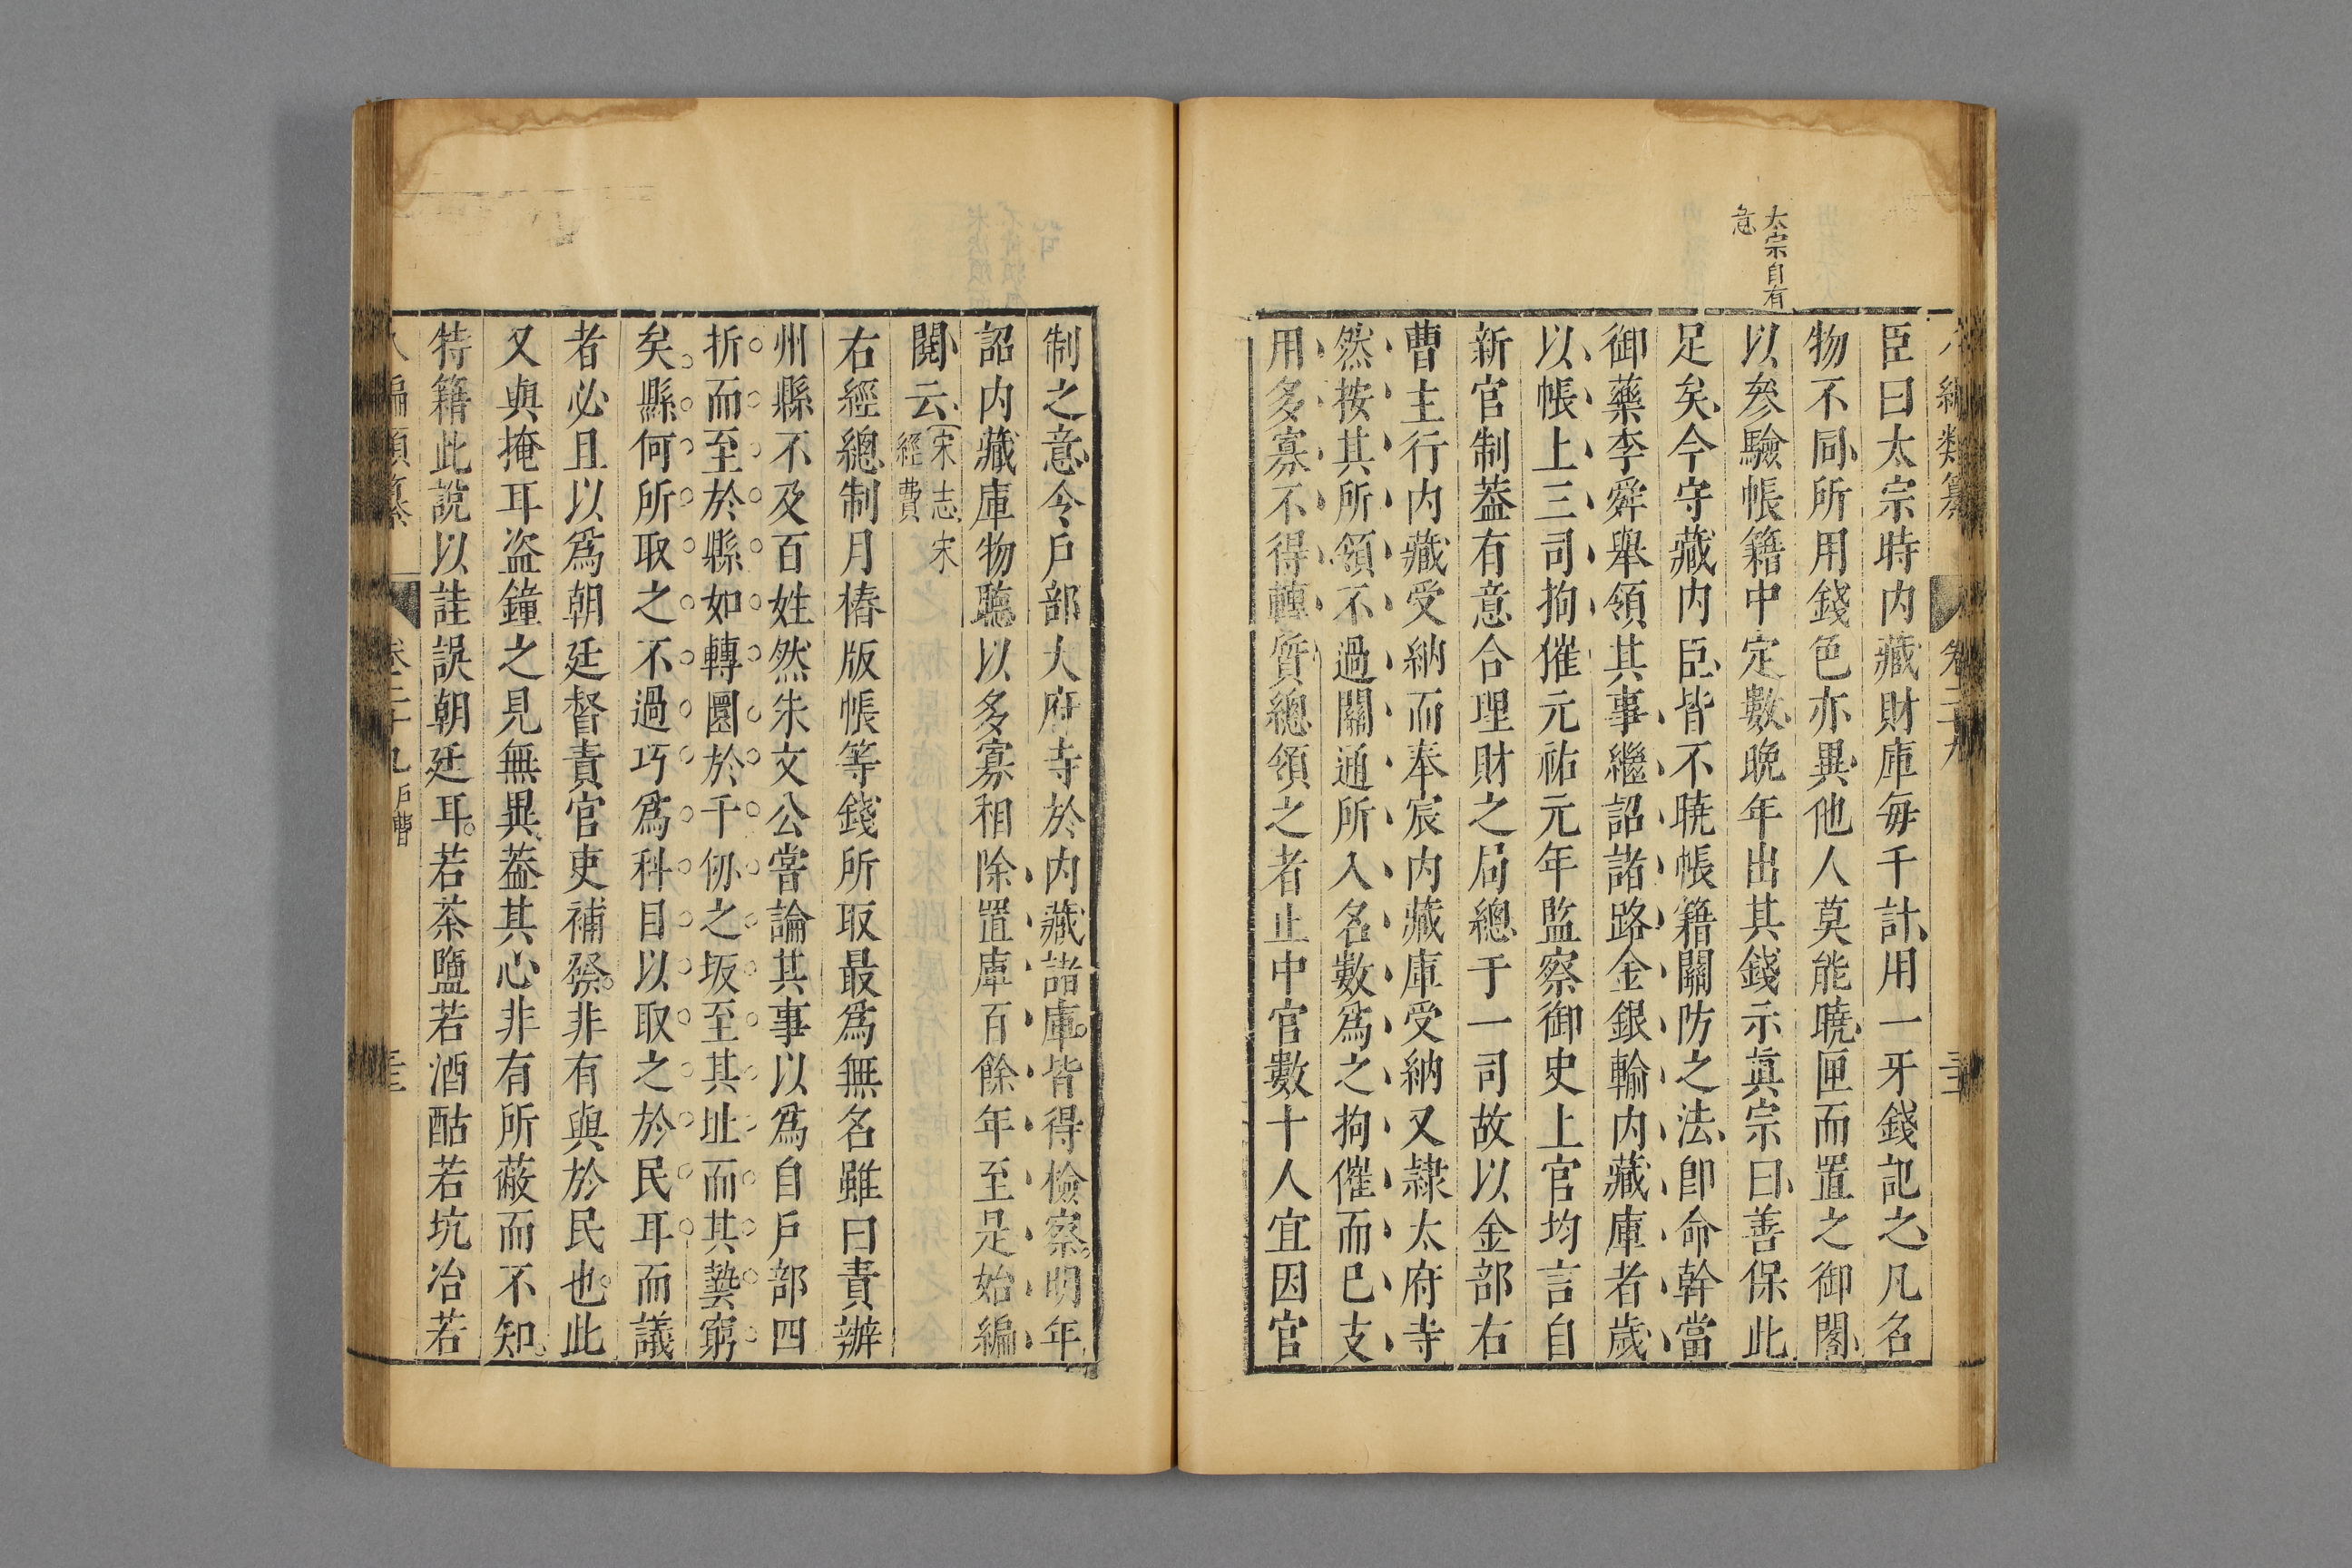 太宗自有
意
編類纂
臣曰太宗時内藏財庫每千計用一牙錢記之凡名
物不同所用錢色亦異他人莫能曉匣而置之御閣
以參驗帳籍中定數晚年出其錢示真宗曰善保此
足矣今守藏内臣皆不曉帳籍關防之法即命幹當
御藥李舜舉領其事繼詔諸路金銀輸内藏庫者歲
以帳上三司拘催元祐元年監察御史上官均言自
新官制葢有意合理財之局總于一司故以金部右
曹主行内藏受納而奉宸内藏庫受納又隸太府寺
然按其所領不過關通所入名數爲之拘催而已支
用多寡不得轉質總領之者止中官數十人宜因官
制之意令戶部大府寺於内藏諸庫皆得檢察明年
詔内藏庫物聽以多寡相除置庫百餘年至是始編
閱云
宋志宋
經費
右經總制月樁版帳等錢所取最爲無名雖曰責辦
州縣不及百姓然朱文公嘗論其事以爲自戶部四
折而至於縣如轉圜於千仞之坂至其址而其㙯窮
矣縣何所取之不過巧爲科目以取之於民耳而議
者必且以爲朝廷督責官吏補發非有與於民也此
又與掩耳盗鐘之見無異葢其心非有所蔽而不知
特籍此說以詿誤朝廷耳若茶鹽若酒酤若坑冶若
編類纂
戶曹